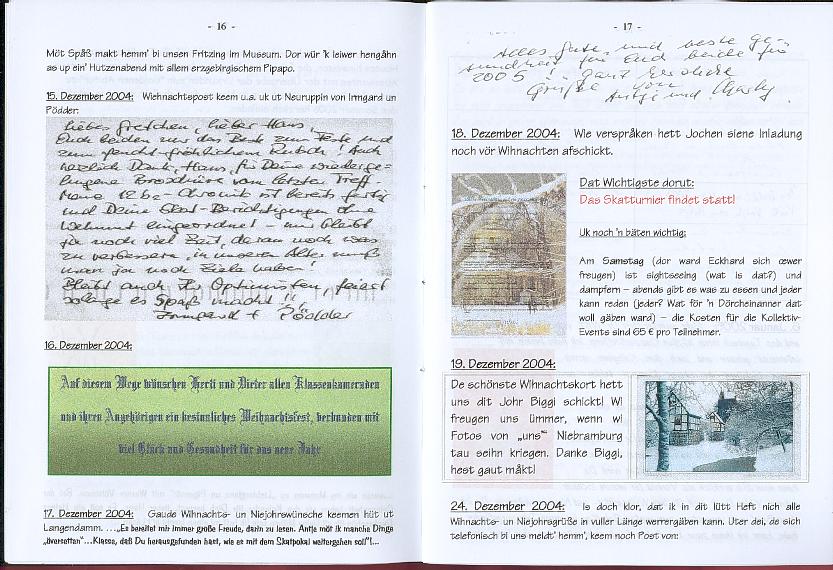 - 16 -
Möt Spåß makt hemm' bi unsen Fritzing im Museum. Dor wür 'k leiwer hengåhn
as up ein' Hutzenabend mit allem erzgebirgischem Pipapo.
15. Dezember 2004: Wiehnachtspost keem u.a. uk ut Neuruppin von Irmgard un
Pödder:
Liebes Gretchen, lieber Hans,
Euch beiden nur das Beste zum Feste und
zum feucht-fröhlichen Rutsch! Auch
herzlich Dank, Hans, für Deine wiederge-
lungene Broschüre vom letzten Treff.
Meine 12b2-Chronik ist bereits fertig
und Deine Skat-Berichtigungen ohne
Wehmut eingeordnet - mir bleibt
ja noch viel Zeit, daran noch was
zu verbessern, in unserem Alter muß
man ja noch Ziele haben!
Bleibt auch Ihr Optimisten, feiert
solange es Spaß macht!!
Irmgard + Pödder
16. Dezember 2004:
Auf diesem Wege wünschen Herti und Dieter allen Klassenkameraden
und ihren Angehörigen ein besinnliches Weihnachtsfest, verbunden mit
viel Glück und Gesundheit für das neue Jahr
17. Dezember 2004: Gaude Wihnachts- un Niejohrswünsche keemen hüt ut
Langendamm. ...„Es bereitet mir immer große Freude, darin zu lesen. Antje möt ik manche Dinge
„översetten"...Klasse, daß Du herausgefunden hast, wie es mit dem Skatpokal weitergehen soll"!...
- 17 -
Alles Gute und beste Ge-
sundheit für Euch beide für
2005!! Ganz herzliche
Grüße von
Antje und Charly
18. Dezember 2004: Wie verspråken hett Jochen siene Inladung
noch vör Wihnachten afschickt.
Dat Wichtigste dorut:
Das Skatturnier findet statt!
Uk noch 'n bäten wichtig:
Am Samstag (dor ward Eckhard sich œwer
freugen) ist sightseeing (wat is dat?) und
dampfern – abends gibt es was zu essen und jeder
kann reden (jeder? Wat för 'n Dörcheinanner dat
woll gäben ward) – die Kosten für die Kollektiv-
Events sind 65 € pro Teilnehmer.
19. Dezember 2004:
De schönste Wihnachtskort hett
uns dit Johr Biggi schickt! Wi
freugen uns ümmer, wenn wi
Fotos von „uns" Niebramburg
tau seihn kriegen. Danke Biggi,
hest gaut måkt!
24. Dezember 2004: Is doch klor, dat ik in dit lütt Heft nich alle
Wihnachts- un Niejohrsgrüße in vuller Länge werrergäben kann. Uter dei, de sich
telefonisch bi uns meldt' hemm', keem noch Post von: